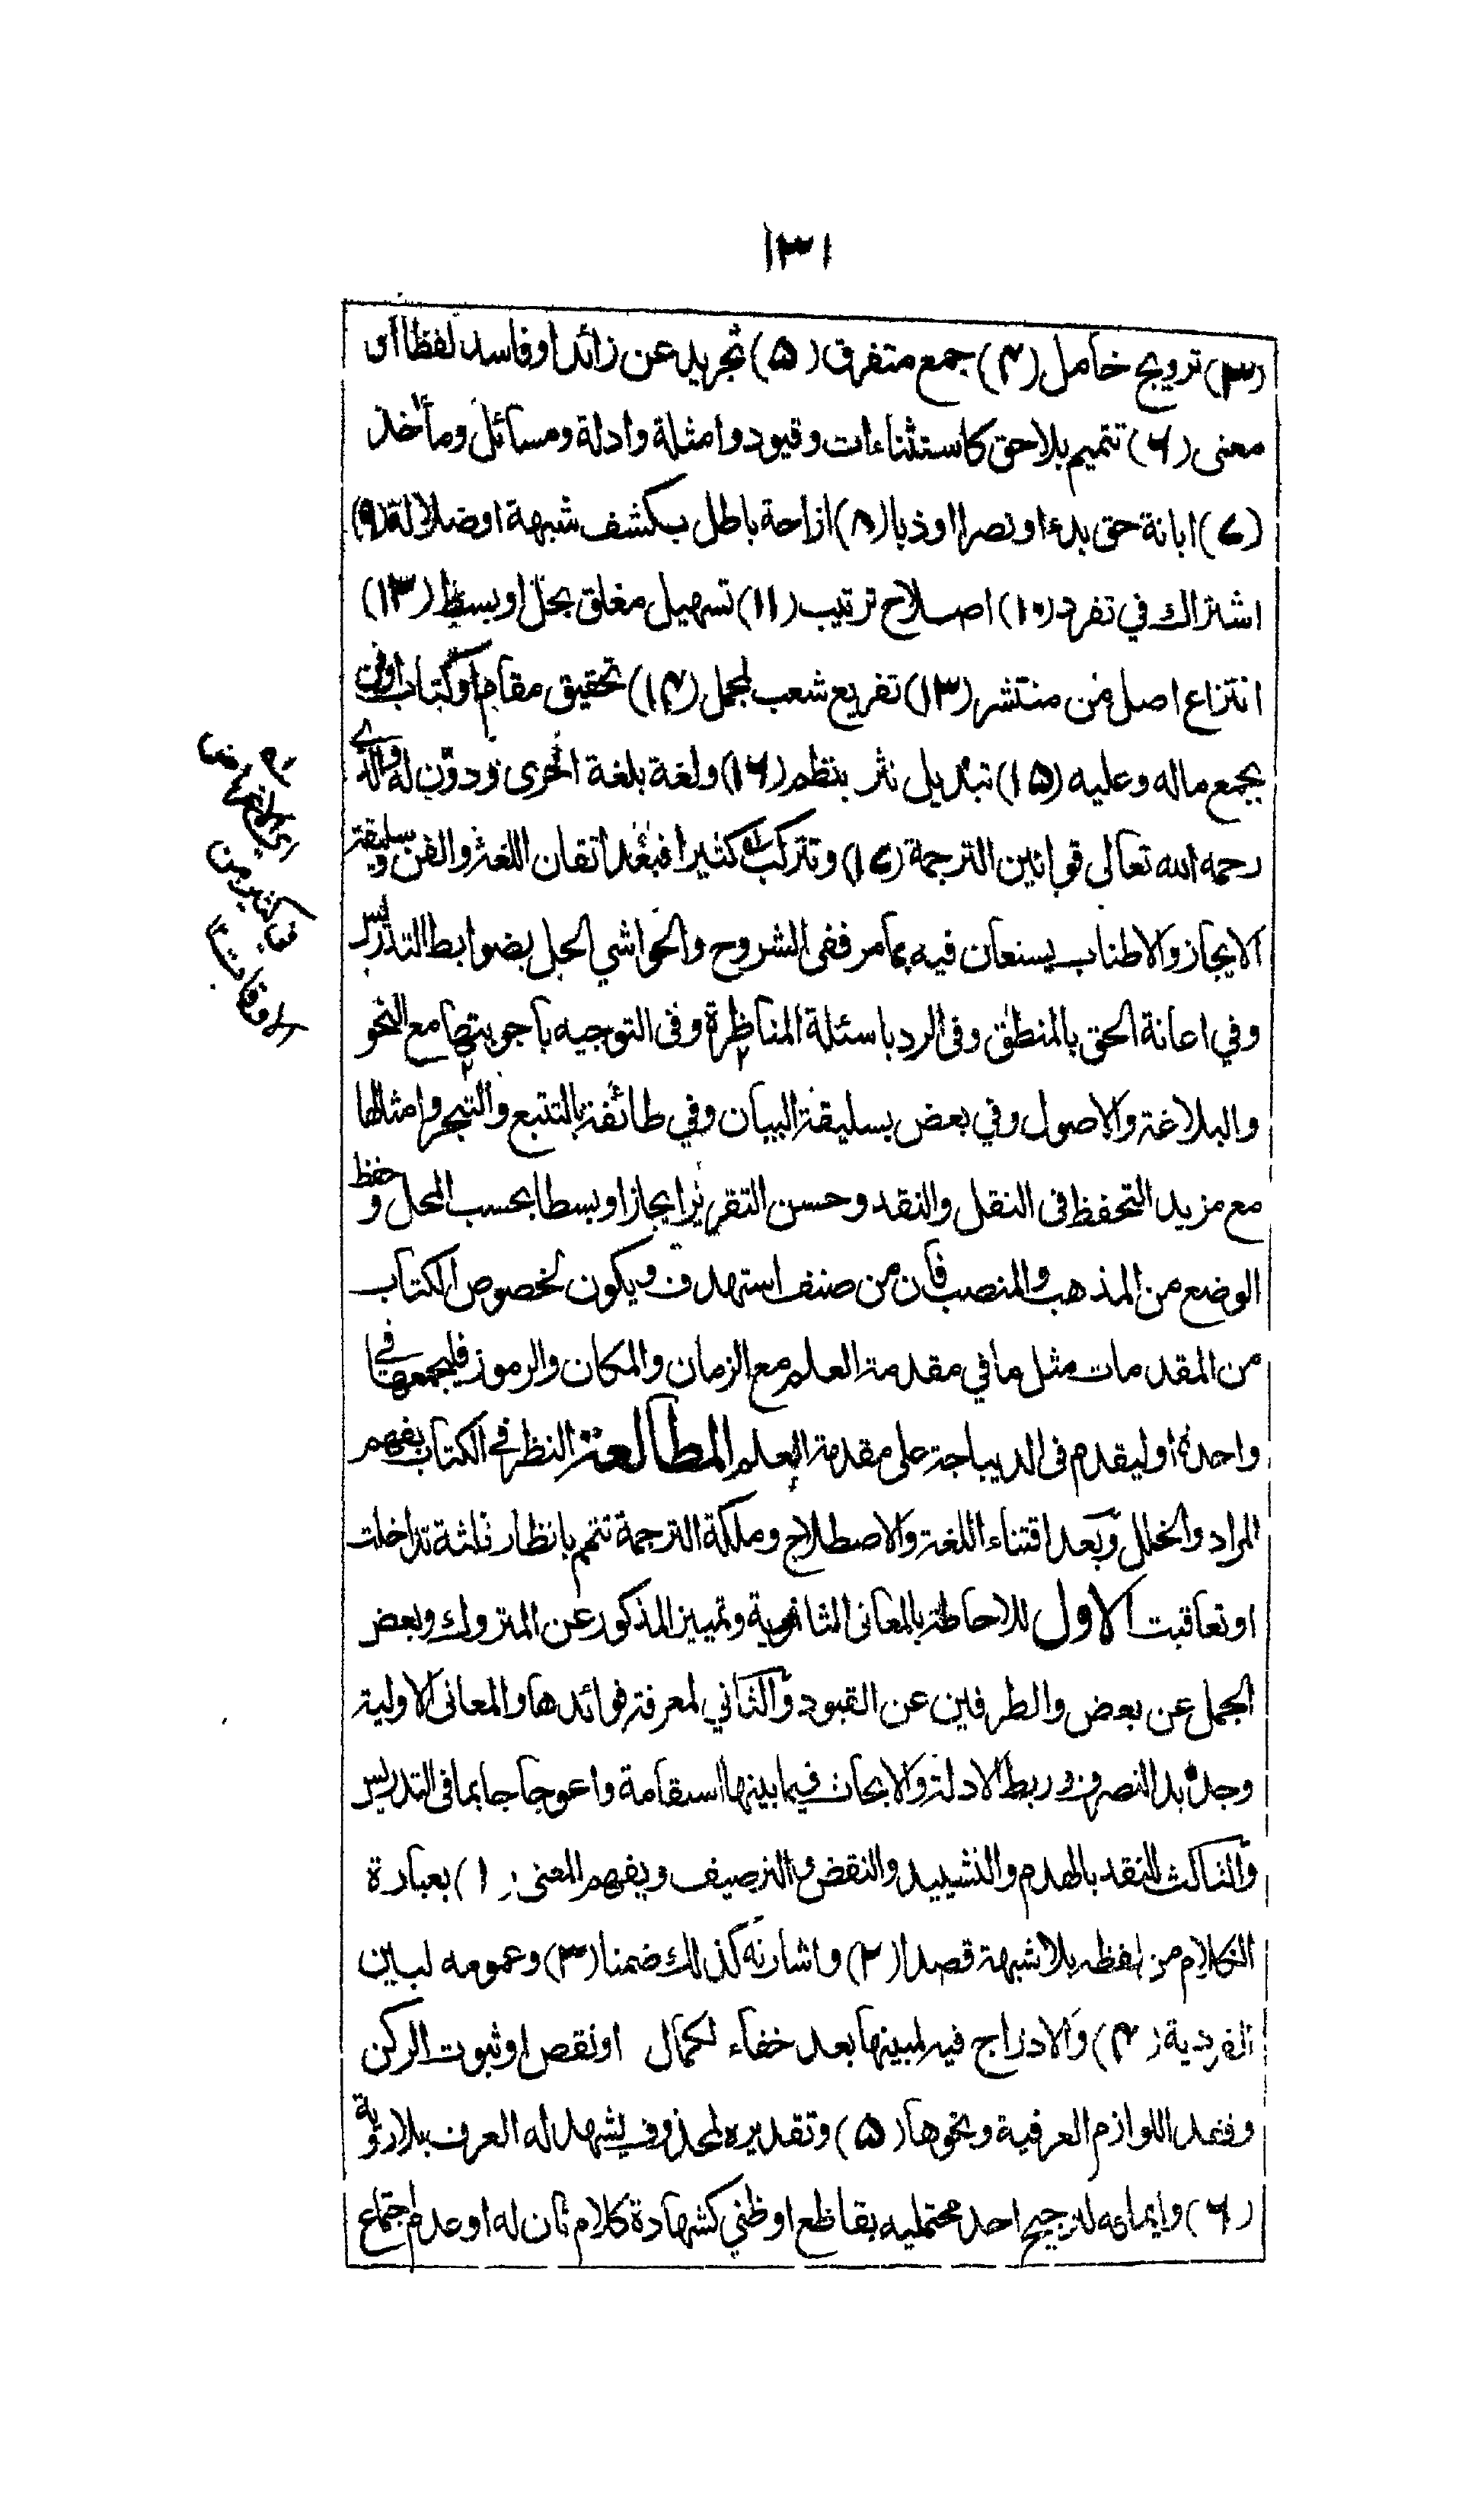 ١٣١
(٣) ترويج خامل (٤) جمع متفرق (٥) تجريد عن زائد او فاسد لفظا او
معنى (٦) تتميم بلاحق كاستثناءات وقيود وامثلة وادلة ومسائل ومآخذ
(٧) ابانة حق بدءا ونصرا اوذبا (٨) ازاحة باطل بكشف شبهة اوضلالة (٩)
اشتراك في تفرد (١٠) اصلاح ترتيب (١١) تسهيل مغلق بحل او بسط (١٢)
انتزاع اصل من منتشر (١٣) تفريع شعب لمجمل (١٤) تحقيق مقام او كتاب اوفن
يجمع ماله وعليه (١٥) تبديل نثر بنظم (١٦) ولغة بلغة اخرى ودون له والدى
رحمه الله تعالى قوانين الترجمة (١٧) وتتركب كثيرا فبعد اتقان اللغة والفن وسليقة
الايجاز والاطناب يستعان فيه بمامر ففى الشروح والحواشي الحل بضوابط التدريس
وفي اعانة الحق بالمنطق وفى الرد باسئلة المناظرة وفى التوجيه باجوبتها مع النحو
والبلاغة والاصول وفي بعض بسليقة البيان وفي طائفة بالتتبع والتبحر وامثالها
مع مزيد التحفظ فى النقل والنقد وحسن التقرير ايجازا وبسطا بحسب المحل وحفظ
الوضع من المذهب والمنصب فان من صنف استهدف ويكون لخصوص الكتاب
من المقدمات مثل ما في مقدمة العلم مع الزمان والمكان والرموز فليجمعها في
واحدة اوليقدم فى الديباجة على مقدمة العلم المطالعة النظر في الكتاب بفهم
المراد والخلل وبعد اقتناء اللغة والاصطلاح وملكة الترجمة تتم بانظار ثلثة تداخلت
اوتعاقبت الاول للاحاطة بالمعانى الثانوية وتمييز المذكور عن المتروك وبعض
الجمل عن بعض والطرفين عن القيود والثاني لمعرفة فوائدها والمعانى الاولية
وربط الادلة والابحاث فيما بينها استقامة واعوجاجا بما فى التدريس
والثالث للنقد بالهدم والتشييد والنقض والترصيف ويفهم المعنى (١) بعبارة
الكلام من لفظه بلا شبهة قصدا (٢) واشارته كذلك ضمنا (٣) وعمومه لبين
الفردية (٤) والادراج فيه لمبينها بعد خفاء لكمال اونقص او ثبوت الركن
وفقد اللوازم العرفية ونحوها (٥) وتقديره لمحذوف يشهد له العرف بلا روية
(٦) وايمائه لترجيح احد محتمليه بقاطع اوظني كشهادة كلام ثان له او عدم اجتماع
في كثير من
الاوقات